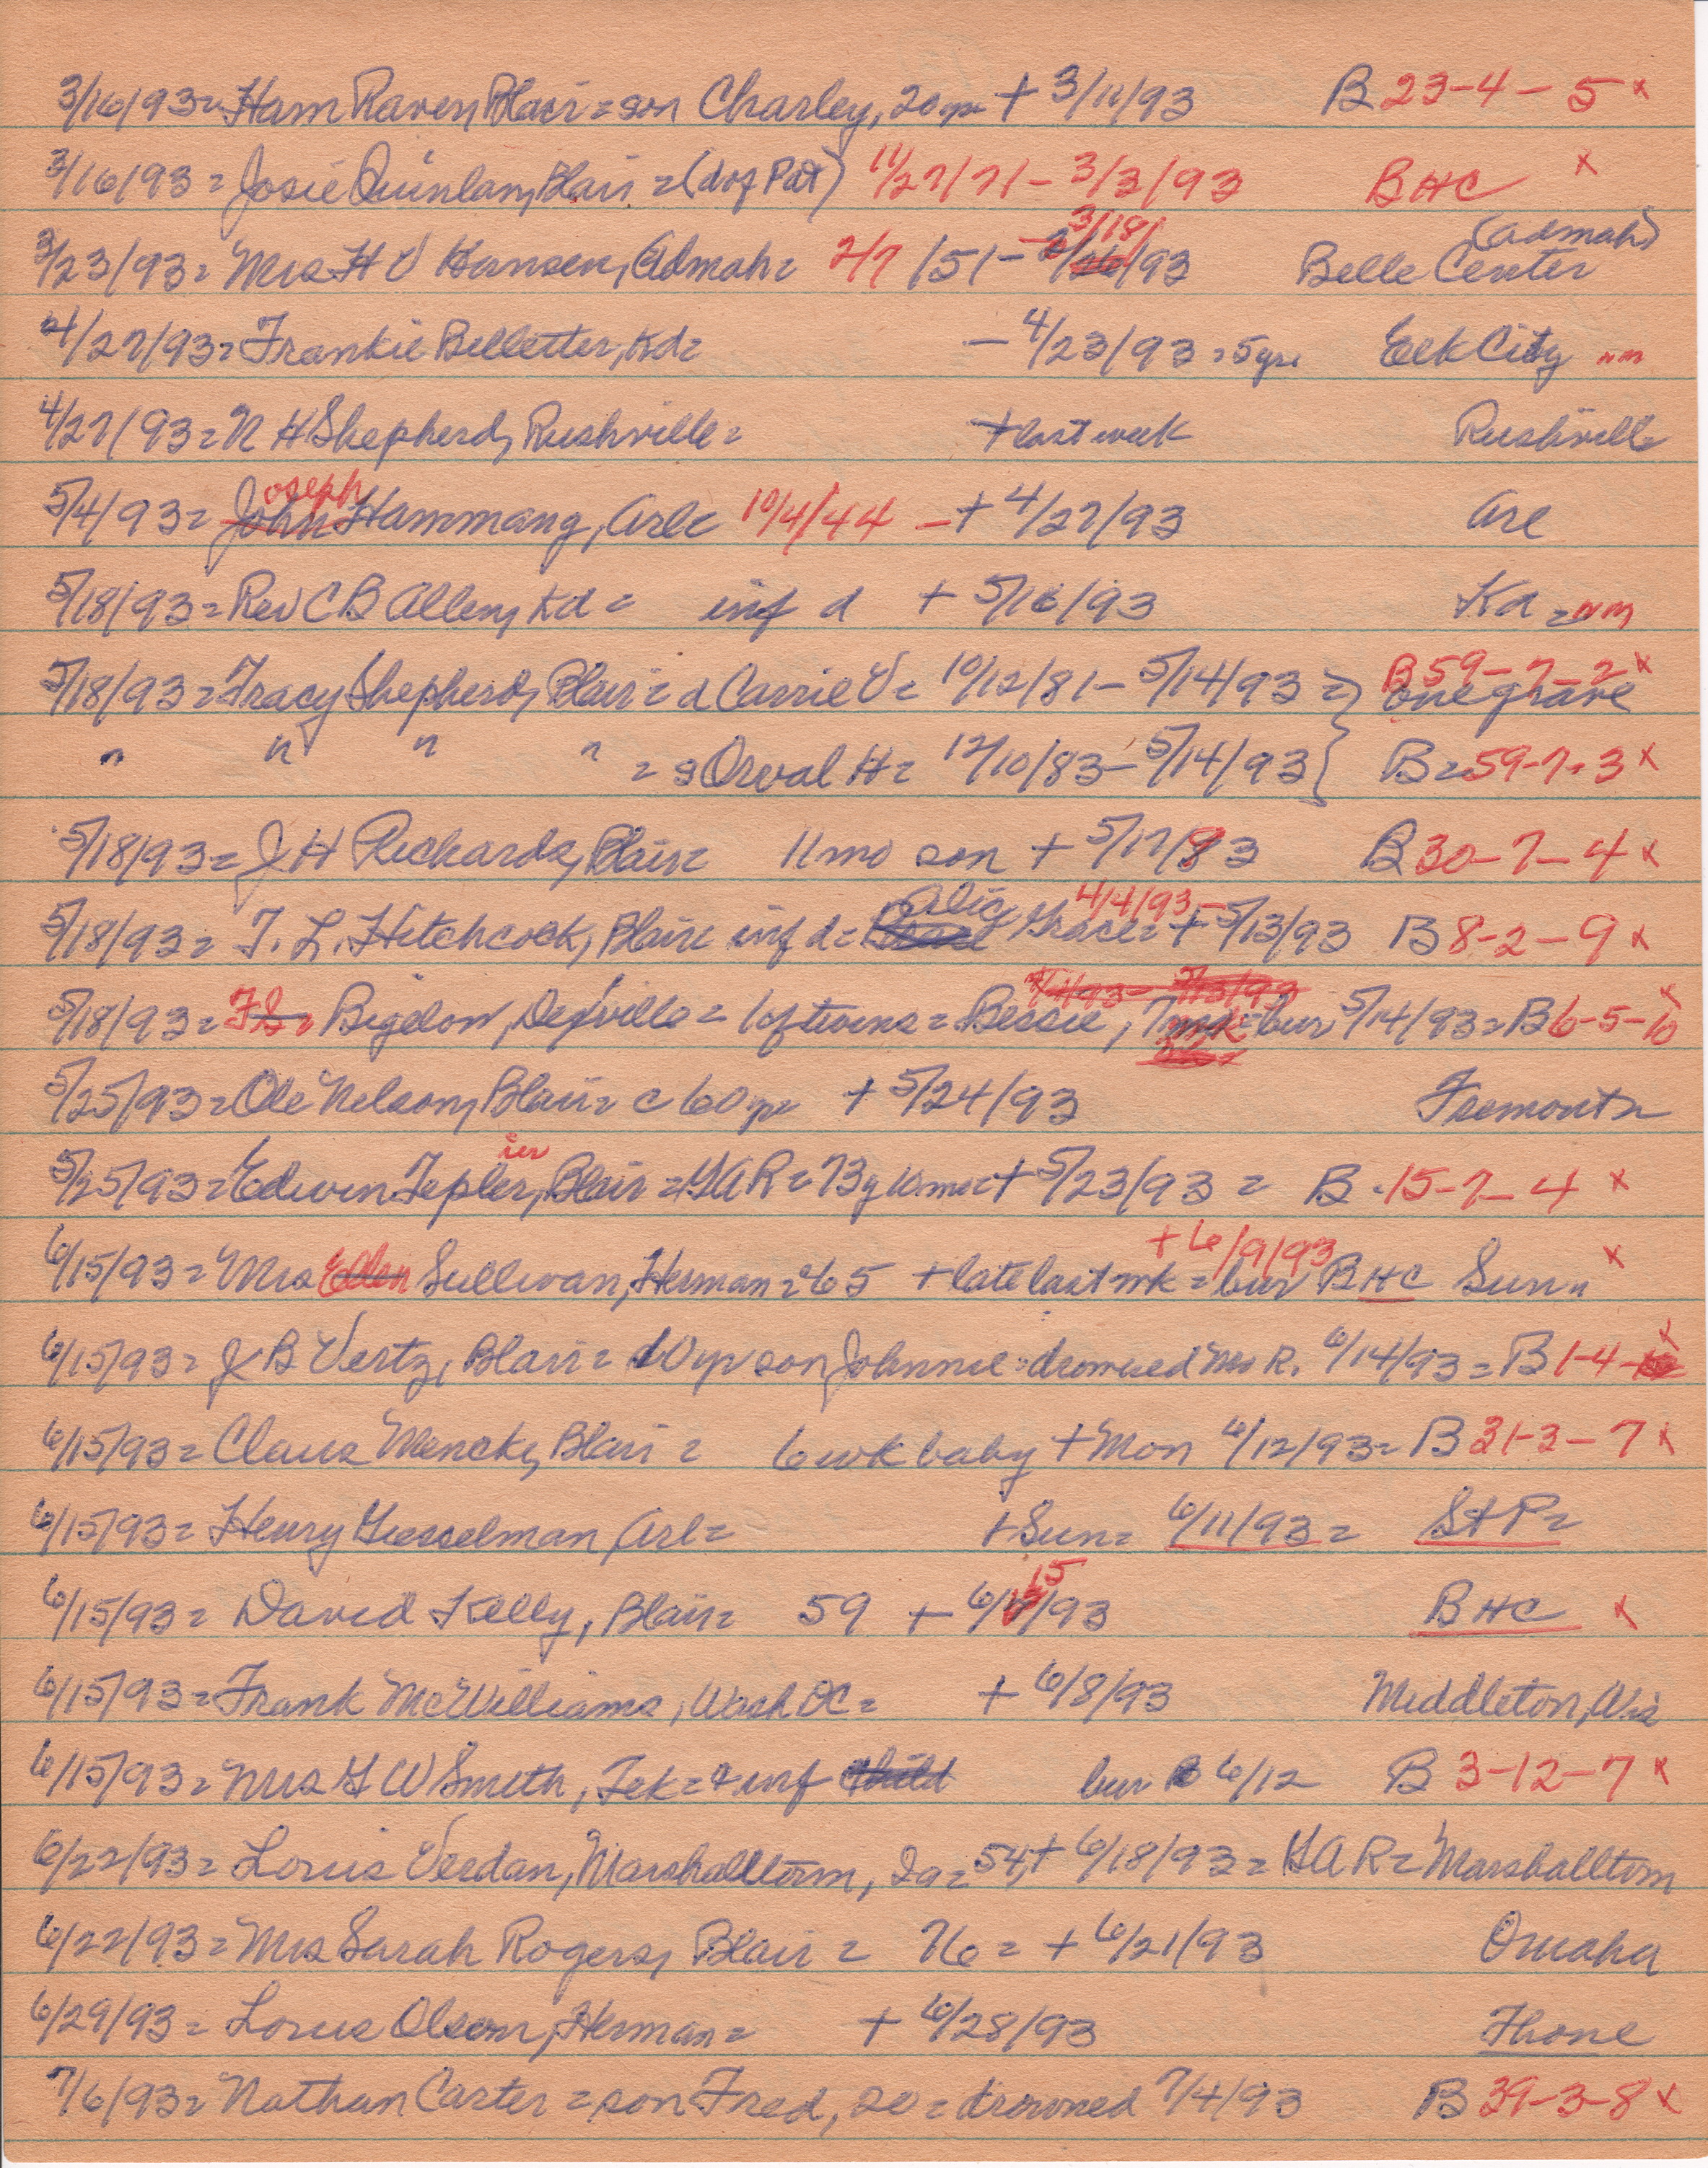 3/16/93 = Ham Raven, Blair = son Charley, 20 yr + 3/11/93 B 23-4-5 x
3/16/93 = Josie Quinlan, Blair = (d of Pat) 11/27/71 - 3/3/93 BHC x
3/18/ (Admah)
3/23/93 = Mrs H V Hansen, Admah = 2/7/51 - /93 Belle Center
4/27/93 = Frankie Belletter, Kd = - 4/23/93 = 5 yrs Elk City nm
4/27/93 = N H Shepherd, Rushville = + last week Rushville
oseph
5/4/93 = John Hammang, Arl = 10/4/44 - + 4/27/93 Arl
5/18/93 = Rev C B Allen, Kd = inf d + 5/16/93 Kd = nm
B 59-7-2 x
5/18/93 = Tracy Shepherd, Blair = d Carrie V = 10/12/81 - 5/14/93 = } one grave
" " " " = s Orval H = 12/10/83 - 5/14/93 } B = 59-7-3 x
5/18/93 = J H Richards, Blair = 11 mo son + 5/17/93 B 30-7-4 x
Alice 4/4/93 -
5/18/93 = T. L. Hitchcock, Blair = inf d = Grace = + 5/13/93 B 8-2-9 x
4/4/93 - 5/13/93 x
5/18/93 = Bigelow, DeSville = 1 of twins = Bessie, bur 5/14/93 = B 6-5-10
5/25/93 = Ole Nelson, Blair = c 60 yr + 5/24/93 Fremont =
ier
5/25/93 = Edwin Tepler, Blair = GAR = 73 y 10 mo = + 5/23/93 = B - 15-7-4 x
+ 6/9/93 x
6/15/93 = Mrs Ellen Sullivan, Herman = 65 + late last wk = bur BHC Sun "
x
6/15/93 = J B Vertz, Blair = 10 yr son Johnnie = drowned Mo R. 6/14/93 = B 1-4-
6/15/93 = Claus Menck, Blair = 6 wk baby + Mon 6/12/93 = B 31-3-7 x
6/15/93 = Henry Giesselman, Arl = + Sun = 6/11/93 = St P =
15
6/15/93 = David Kelly, Blair = 59 + 6/ /93 BHC x
6/15/93 = Frank McWilliams, Wash DC = + 6/8/93 Middleton, Wis
6/15/93 = Mrs G W Smith, Tek = + inf child bur B 6/12 B 3-12-7 x
6/22/93 = Louis Verdan, Marshalltown, Ia = 54 + 6/18/93 = GAR = Marshalltown
6/22/93 = Mrs Sarah Rogers, Blair = 76 = + 6/21/93 Omaha
6/29/93 = Louis Olson, Herman = + 6/28/93 Thone
7/6/93 = Nathan Carter = son Fred, 20 = drowned 7/4/93 B 39-3-8 x